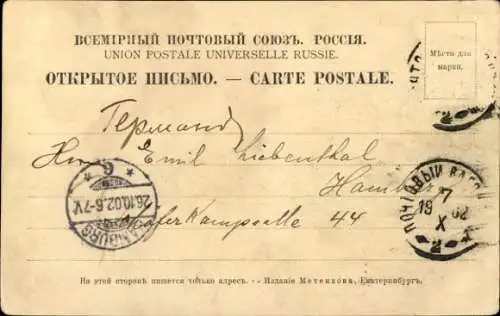 ВСЕМІРНЫЙ ПОЧТОВЫЙ СОЮЗЪ. РОССІЯ.
UNION POSTALE UNIVERSELLE RUSSIE.
ОТКРЫТОЕ ПИСЬМО. — CARTE POSTALE.
Мѣсто для
марки.
Германія
Herrn Emil Liebenthal
Hamburg
44
HAMBURG
26.10.02.6-7V.
6
ПОЧТОВЫЙ ВАГОН
7
19 02
X
2
На этой сторонѣ пишется только адресъ. — Изданіе Метенкова, Екатеринбургъ.